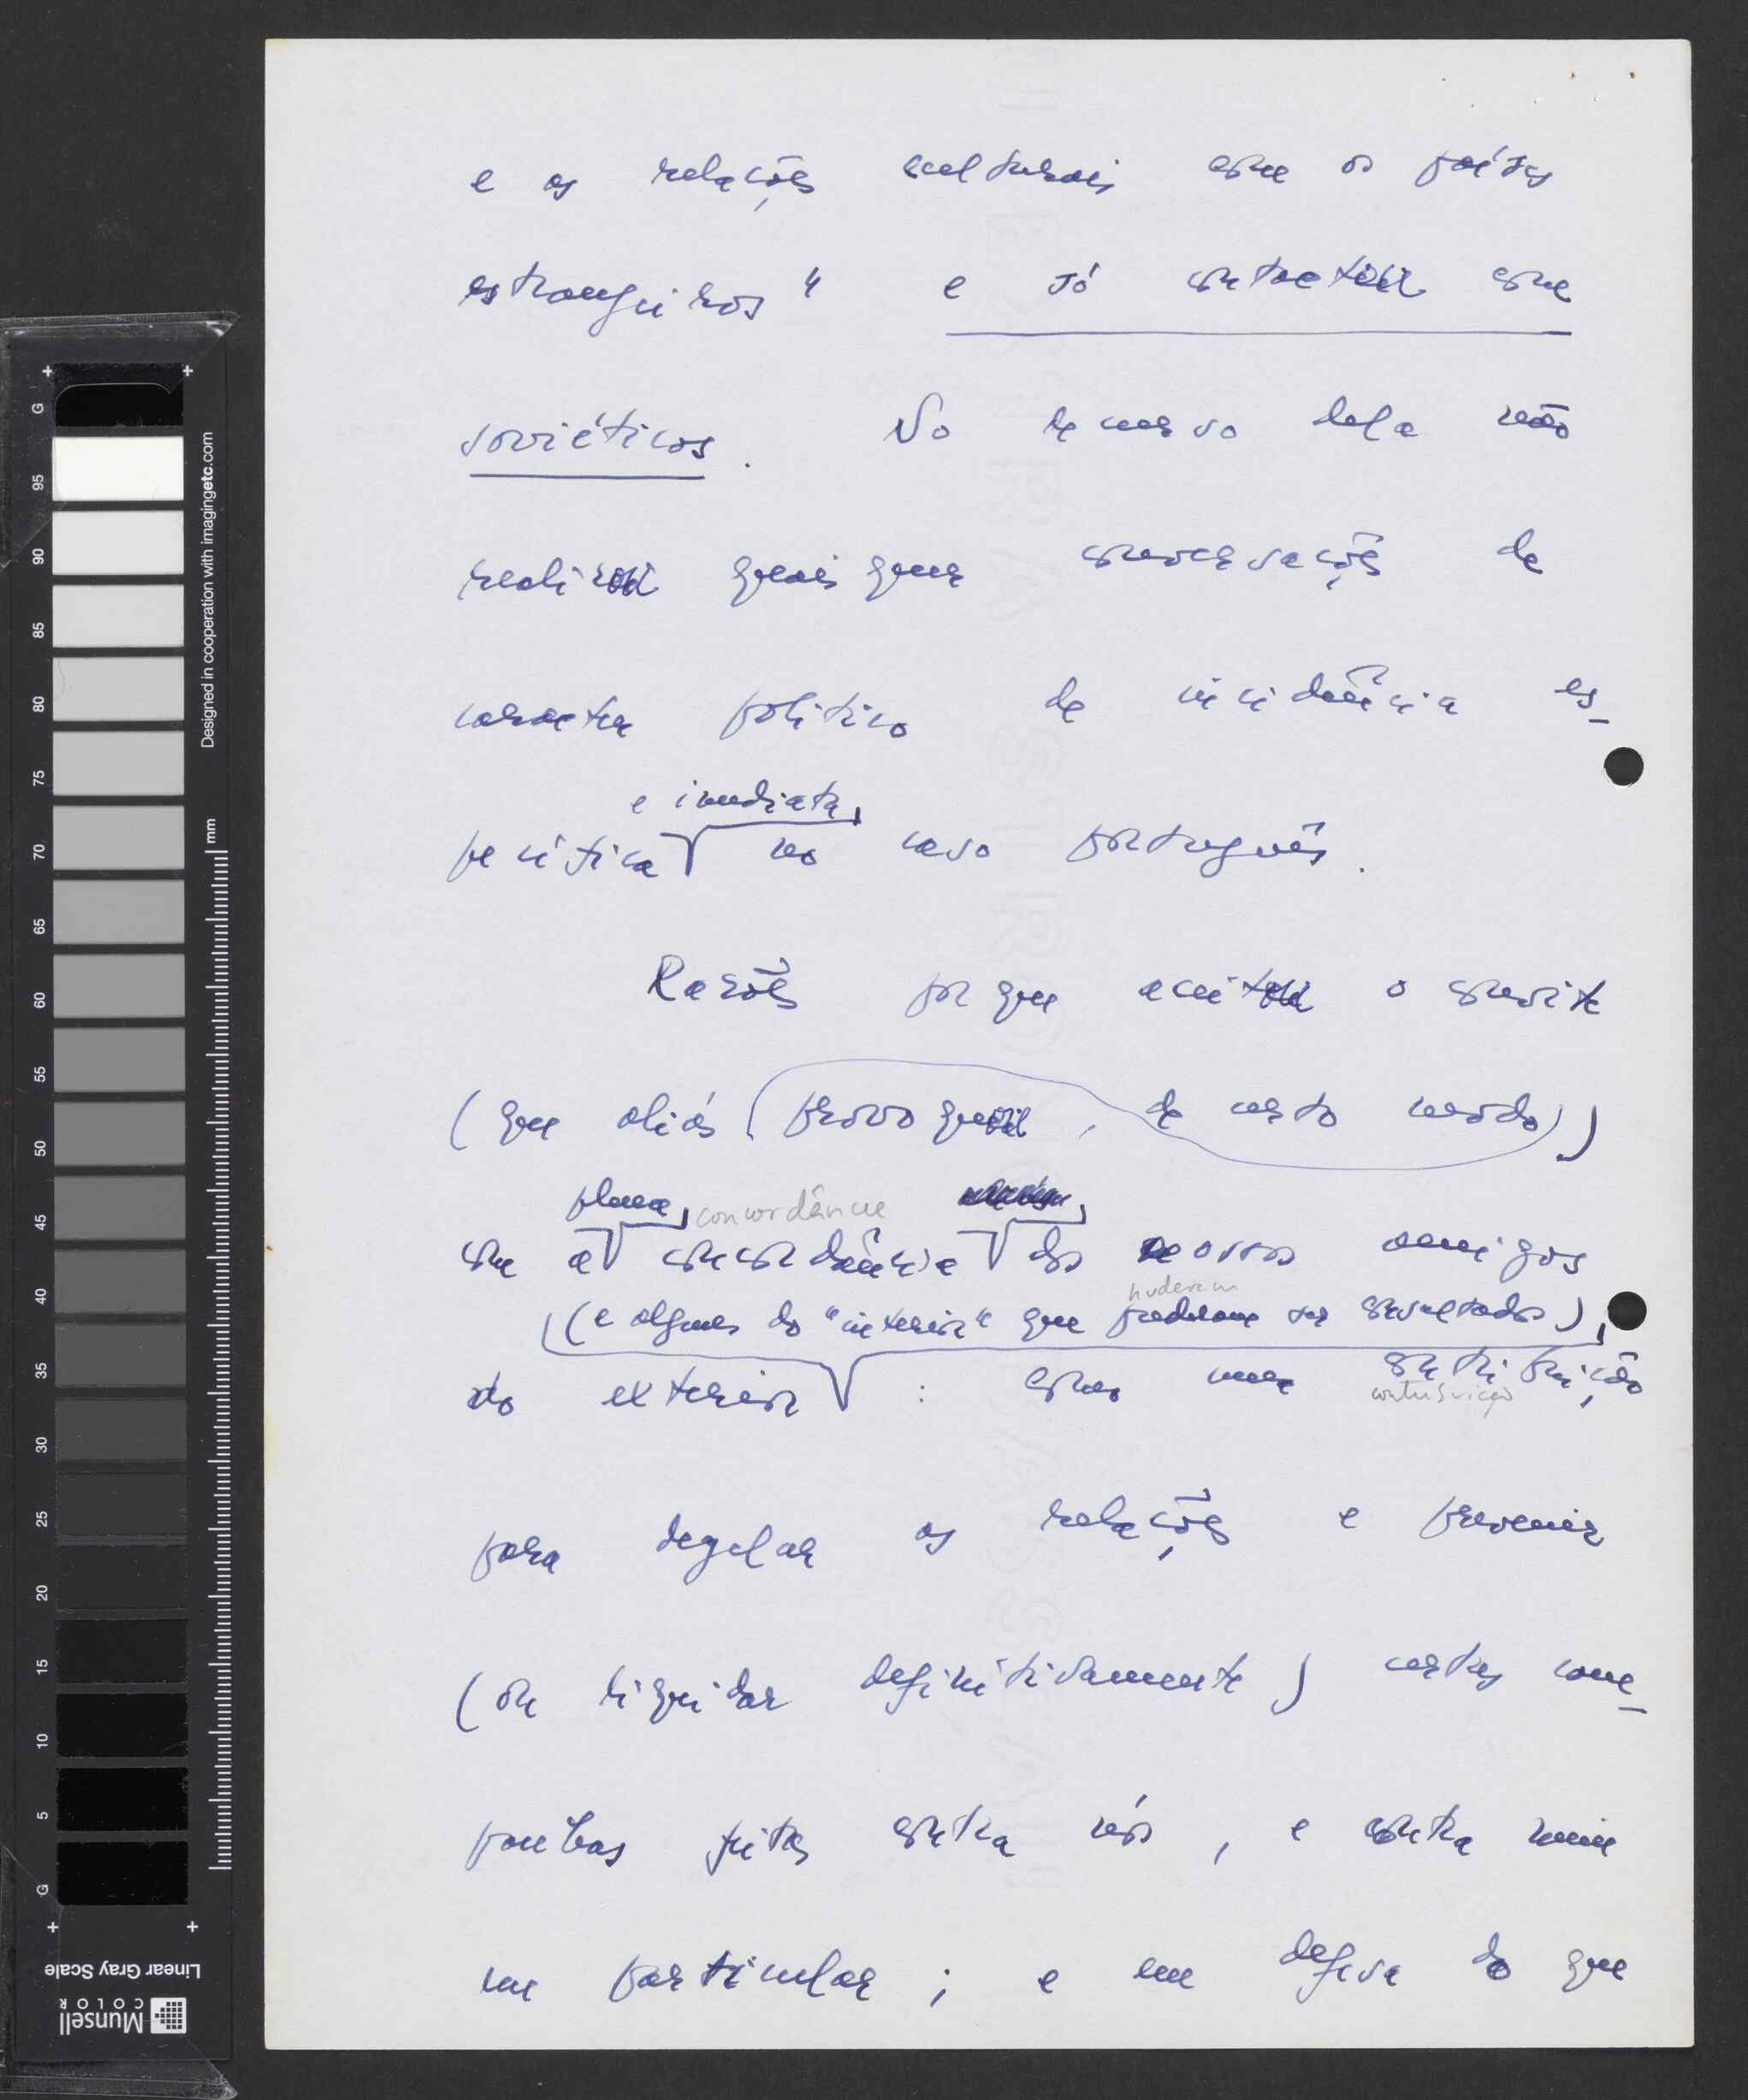 e as relações culturais com os países
estrangeiros" e só contactei com
soviéticos. No decurso dela não
realizei quaisquer conversações de
caracter político de incidência es-
e imediata,
pecífica no caso português.
Razões porque aceitei o convite
(que aliás (provoquei, de certo modo))
plena, concordância
com a concordância dos nossos amigos
puderem
(e alguns do "interior" que puderam ser consultados),
do exterior : como uma contribuição
contribuição
para degelar as relações e prevenir
(ou liquidar definitivamente) certas cam-
panhas feitas contra nós, e contra mim
em particular; e em defesa do que
Designed in cooperation with imagingetc.com
mm
G 95 90 85 80 75 70 65 60 55 50 45 40 35 30 25 20 15 10 5 G
Linear Gray Scale
Munsell
COLOR